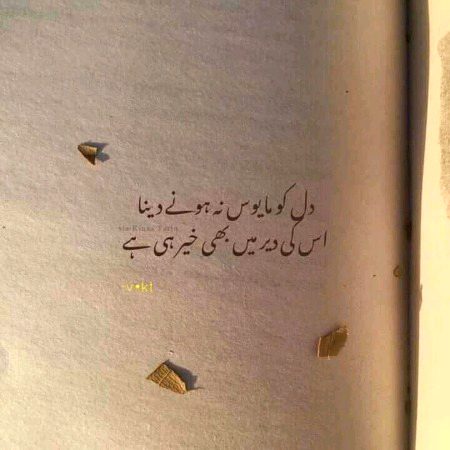 دل کو مایوس نہ ہونے دینا
اس کی دیر میں بھی خیر ہی ہے